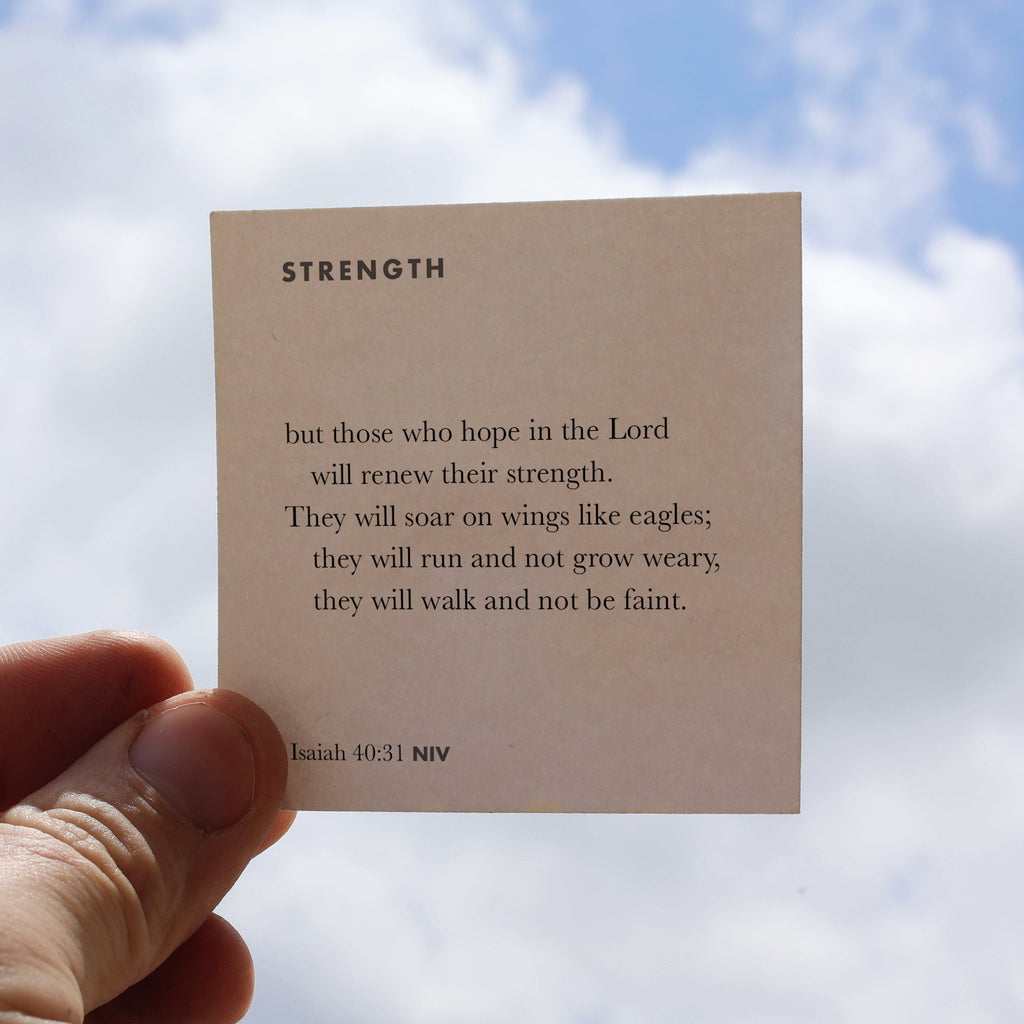 STRENGTH
but those who hope in the Lord
will renew their strength.
They will soar on wings like eagles;
they will run and not grow weary,
they will walk and not be faint.
Isaiah 40:31 NIV